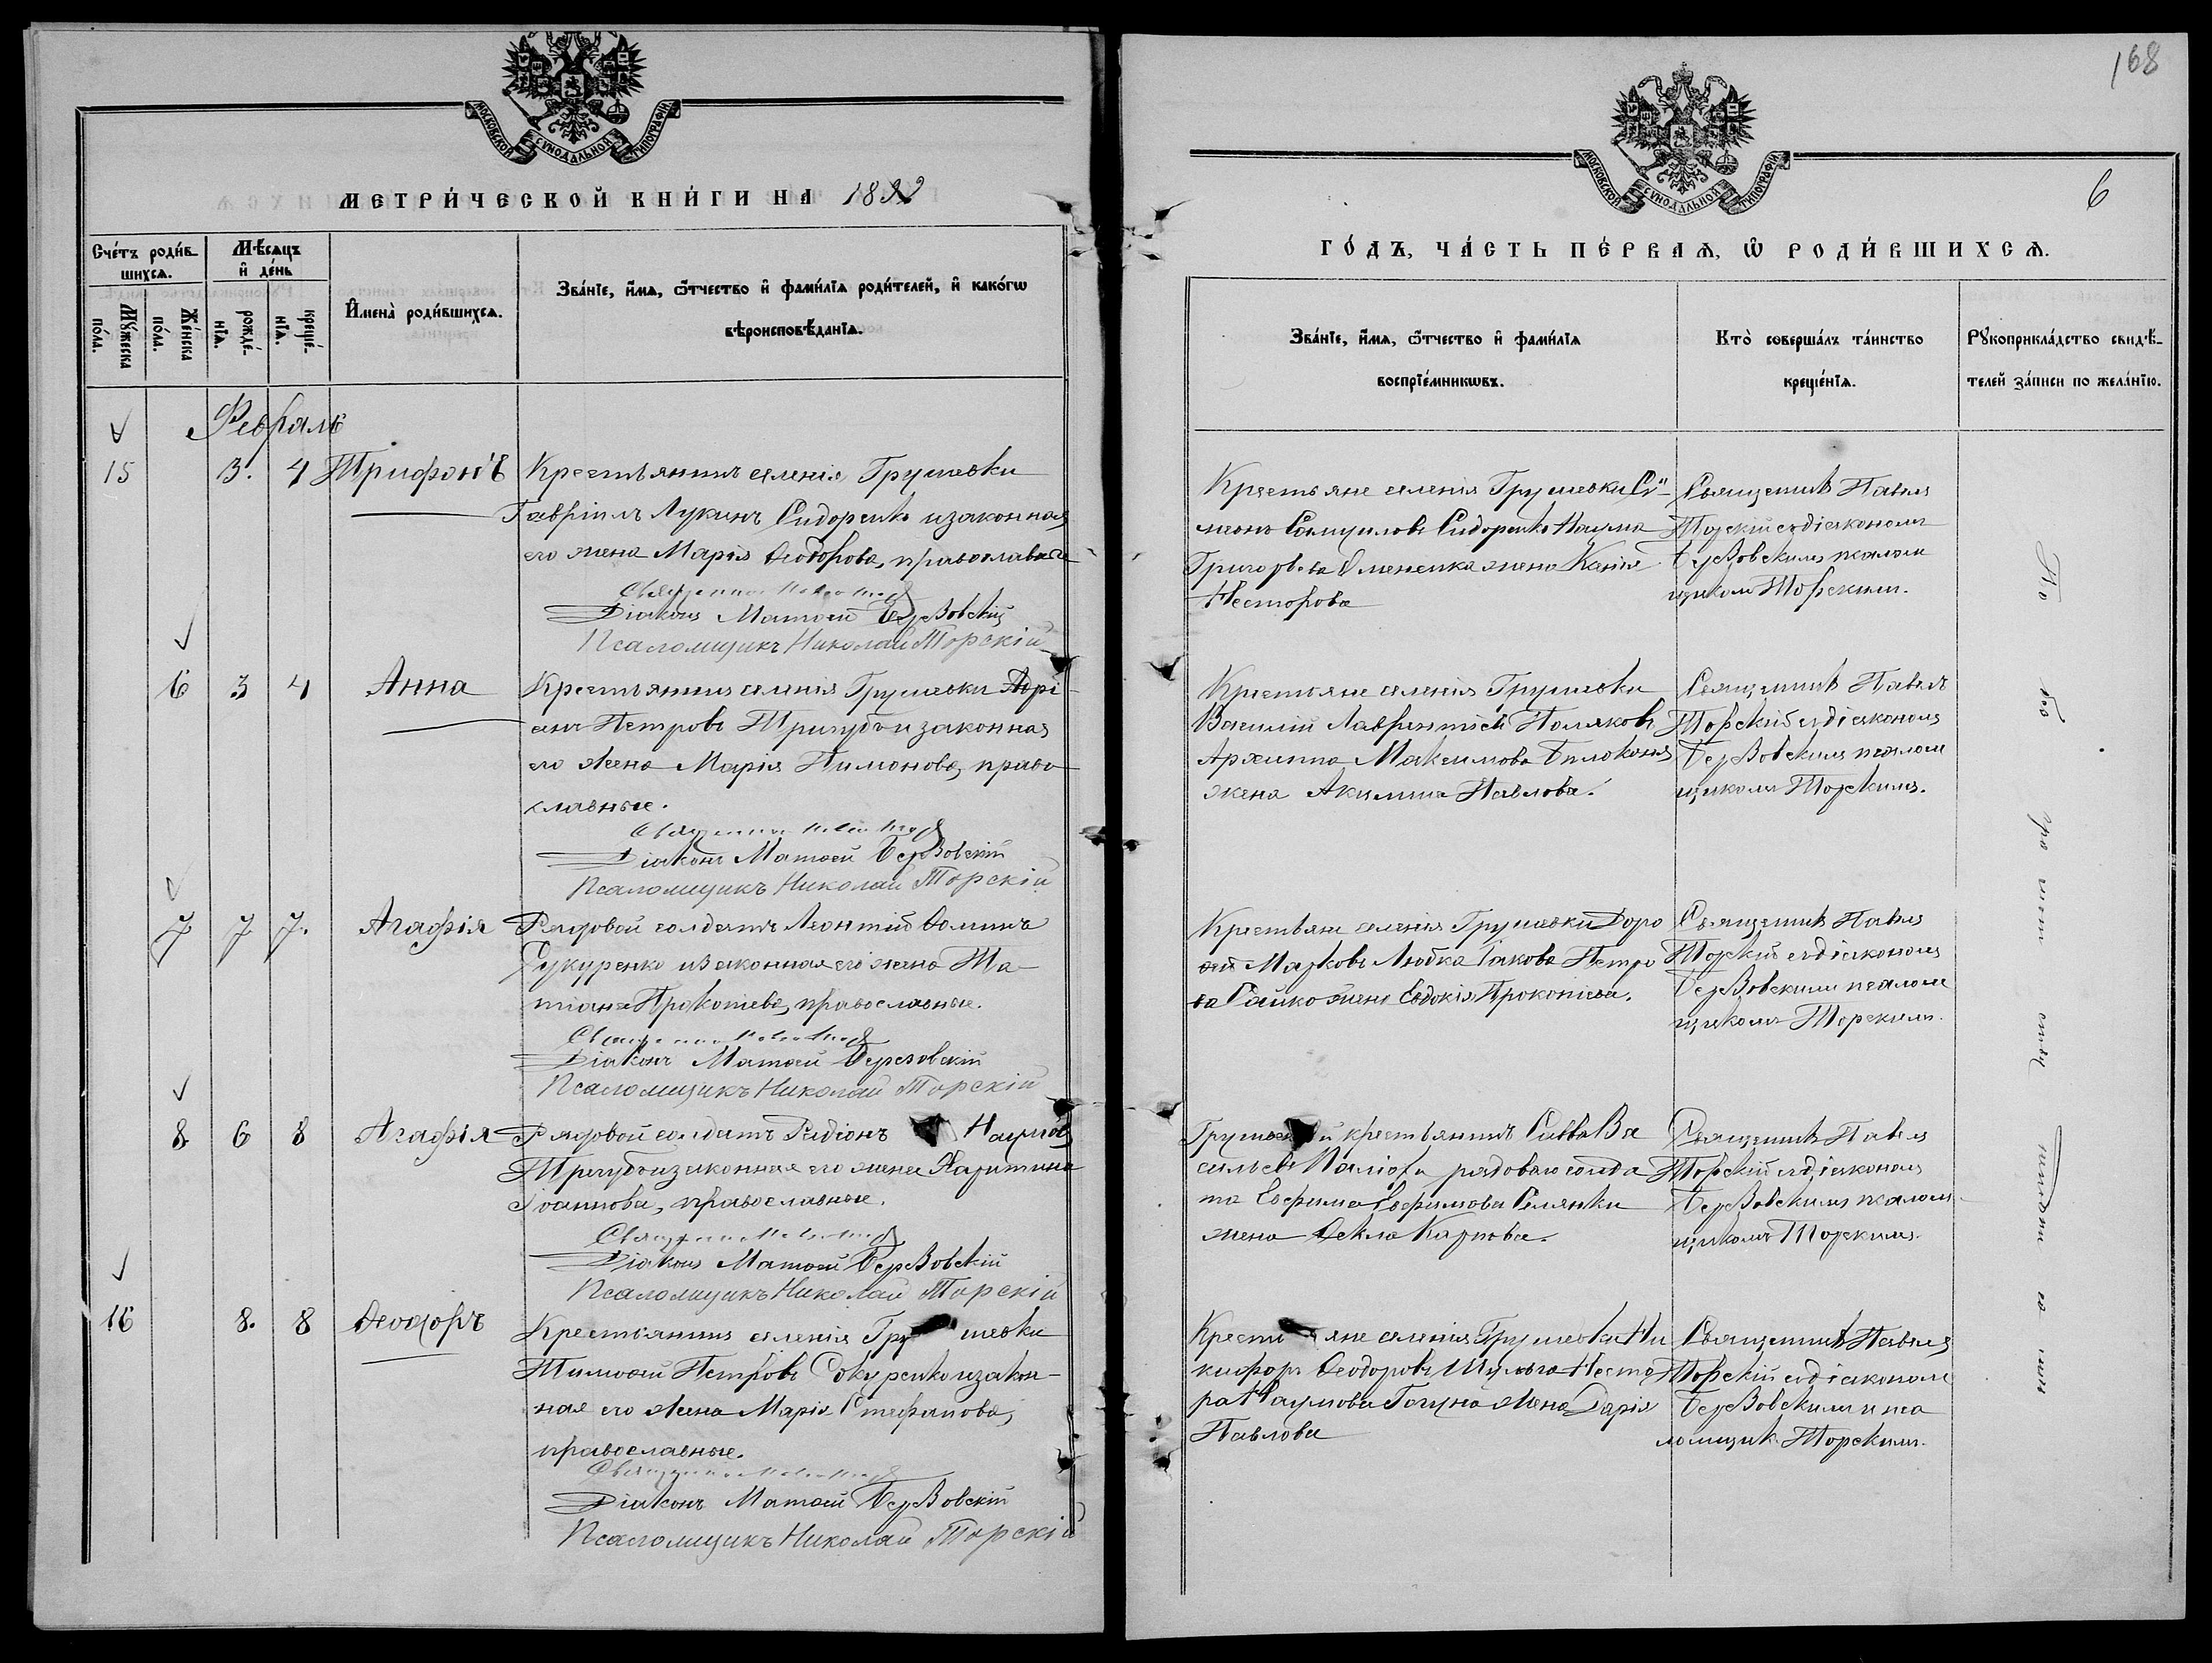 МОСКОВСКОЙ СѴНОДАЛЬНОЙ ТИПОГРАФІИ
МЕТРИ́ЧЕСКОЙ КНИ́ГИ НА 1892
Сче́тъ роди́в-
шихсѧ.
Мѣ́сѧцъ
и҆ де́нь
Мꙋ́жеска
по́ла.
Же́нска
по́ла.
рожде́-
нїѧ.
креще́-
нїѧ.
И҆мена̀ роди́вшихсѧ.
Зва́нїе, и҆́мѧ, ѻ҆́тчество и҆ фами́лїѧ роди́телей, и҆ како́гѡ
вѣроисповѣ́данїѧ.
Февраль
15 3. 4 Трифонъ Крестьянинъ селенія Грушевки
Гавріилъ Лукинъ Сидоренко и законная
его жена Марія Ѳеодорова, православные
Діаконъ Матѳей Березовскій
Псаломщикъ Николай Торскій
6 3 4 Анна Крестьянинъ селенія Грушевки Адрі-
анъ Петровъ Тригубъ и законная
его жена Марія Пимонова, право-
славные.
Діаконъ Матѳей Березовскій
Псаломщикъ Николай Торскій
7 7 7. Агафія Рядовой солдатъ Леонтій Ѳоминъ
Сукуренко и законная его жена Та-
тіана Прокопіева, православные.
Діаконъ Матѳей Березовскій
Псаломщикъ Николай Торскій
8 6 8 Агафія Рядовой солдатъ Родіонъ Наумовъ
Тригубъ и законная его жена Харитина
Іоаннова, православные.
Діаконъ Матѳей Березовскій
Псаломщикъ Николай Торскій
16 8. 8 Ѳеодоръ Крестьянинъ селенія Грушевки
Тимоѳей Петровъ Сокуренко и закон-
ная его жена Марія Стефанова,
православные.
Діаконъ Матѳей Березовскій
Псаломщикъ Николай Торскій
168
МОСКОВСКОЙ СѴНОДАЛЬНОЙ ТИПОГРАФІИ
6
ГО́ДЪ, ЧА́СТЬ ПЕ́РВАѦ, Ѡ҆ РОДИ́ВШИХСѦ.
Зва́нїе, и҆́мѧ, ѻ҆́тчество и҆ фами́лїѧ
воспрїе́мникѡвъ.
Кто̀ соверша́лъ та́инство
креще́нїѧ.
Рꙋкоприкла́дство свидѣ́-
телей за́писи по жела́нїю.
Крестьяне селенія Грушевки Си-
меонъ Самуиловъ Сидоренко Наума
Григорьева Омененка жена Ксенія
Несторова
Священникъ Павелъ
Торскій съ діакономъ
Березовскимъ псалом
щикомъ Торскимъ.
Крестьяне селенія Грушевки
Василій Лаврентіевъ Поляковъ
Архиппа Максимова Билоконя
жена Акилина Павлова.
Священникъ Павелъ
Торскій съ діакономъ
Березовскимъ псалом
щикомъ Торскимъ.
Крестьяне селенія Грушевки Доро
ѳей Марковъ Любка Іакова Петро
ва Сайко жена Евдокія Прокопіева.
Священникъ Павелъ
Торскій съ діакономъ
Березовскимъ псалом
щикомъ Торскимъ.
Грушевскій крестьянинъ Савва Ва
сильевъ рядового солда
та Ефима Ефимова Селянки
жена Ѳекла Карпова.
Священникъ Павелъ
Торскій съ діакономъ
Березовскимъ псалом-
щикомъ Торскимъ.
Крестьяне селенія Грушевки Ни
кифоръ Ѳеодоровъ Шульга Несто
ра Наумова Гагуна жена Дарія
Павлова
Священникъ Павелъ
Торскій съ діакономъ
Березовскимъ и пса
ломщик Торскимъ.